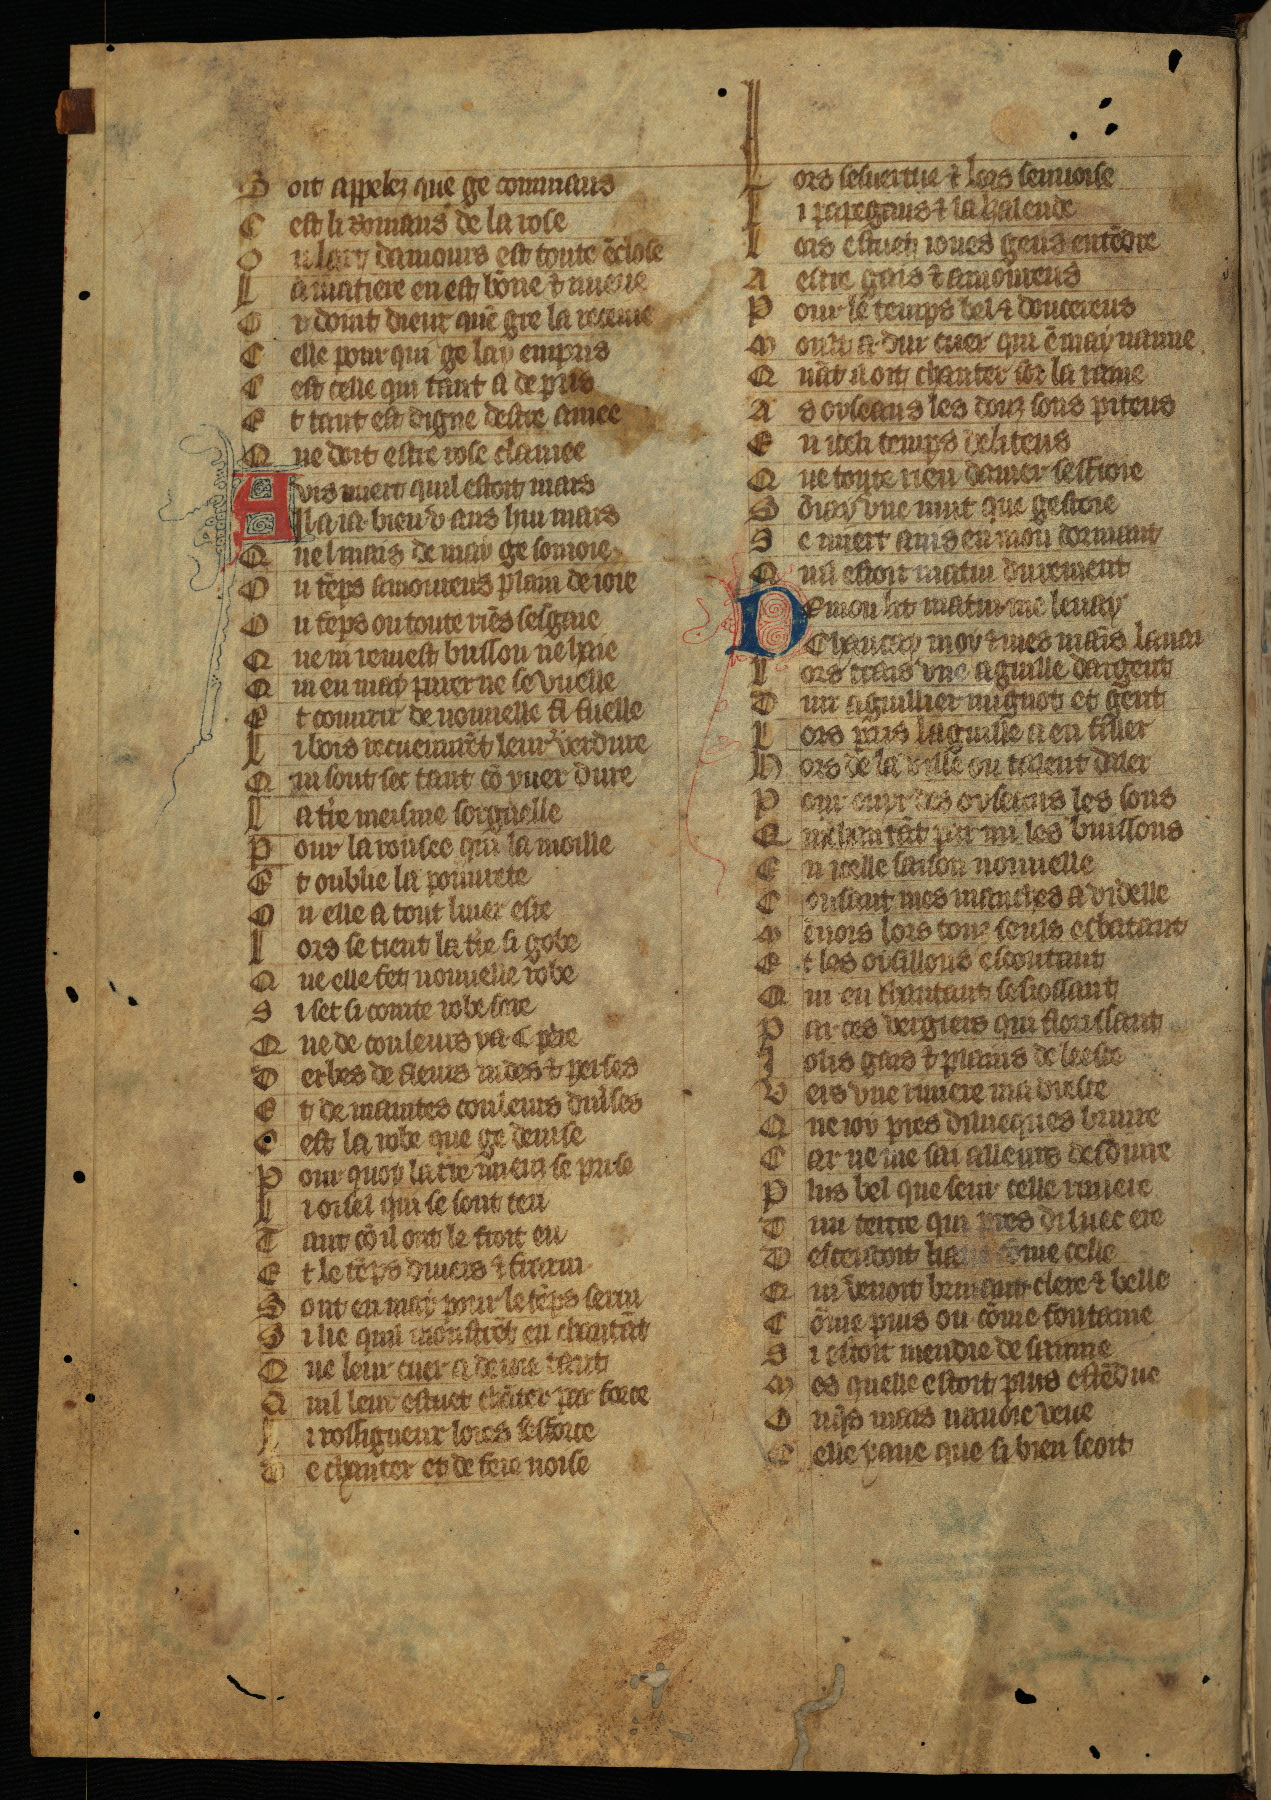 Soit appelez que ge commans
Cest li romans de la rose
Ou lart damours est toute ẽclose
La matiere en est bõne & nueue
Or doint dieux que gre la receiue
Celle pour qui ge lay empris
Cest celle qui tant a de pris
Et tant est digne destre amee
Que doit estre rose clamee
Avis miert quil estoit mars
Il a ia bien v ans hui mars
Quel mais de may ge somoie
Du tẽps amoureus plain de ioie
Du tẽps ou toute riẽs sesgaie
Que ni remest buisson ne haie
Qui en may parer ne se vuelle
Et couurir de nouuelle fueille
Li bois recueuurẽt leur verdure
Qui sont sec tant cõ yuer dure
La tre meisme sorguelle
Pour la rousee qui la moille
Et oublie la pouurete
Ou elle a tout liuer este
Lors se tient la tre si gobe
Que elle fet nouuelle robe
Si set si cointe robe fere
Que de couleurs ya C pere
Derbes de fleurs indes & perses
Et de maintes couleurs diuses
Cest la robe que ge deuise
Pour quoy la tre mieux se prise
Li oisel qui se sont teu
Tant cõ il ont le froit eu
Et le tẽps diuers & frarin
Sont en may pour le tẽps serin
Si lie quil monstrẽt en chantãt
Que leur cuer a de ioie tant
Quil leur estuet chãter par force
Li rossigneux lores sesforce
De chanter et de fere noise
Lors sesuertue & lors senuoise
Li papegaus & la kalende
Lors estuet iones gens entẽdre
A estre gais & amoureus
Pour le temps bel & doucereus
Moult a dur cuer qui ẽ may naime
Quãt il oit chanter sor la raime
As oyseaus les douz sons piteus
En iteli temps deliteus
Que toute rien damer sesfroie
Sõiay vne nuit que gestoie
Se miert auis en mon dormant
Quil estoit matin durement
De mon lit matin me leuay
Chaucay moy & mes mains lauai
Lors trais vne aguille dargent
Dun aguillier mignot et gent
Lors pris laguille a enfiler
Hors de la ville ou talent daler
Pour ouyr des oyseaus les sons
Qui chantãt par mi les buissons
En icelle saison nouuelle
Cousant mes manches a videlle
Mẽnois lors touz seuls esbatant
Et les oysillons escoutant
Qui en chantant sesiossant
Par ces vergiers qui florissant
Jolis gais & plains de leesce
Vers vne riuiere madresce
Que ioy pres dilueques bruire
Car ne me sai alleurs desduire
Plus bel que seur celle riuiere
Dun tertre qui pres diluec ere
Descendoit liaue cõme celle
Qui venoit bruiant clere & belle
Cõme puis ou cõme fontaine
Si estoit mendre de sainne
Mes quelle estoit plus estẽdue
Onqs mais nauoie veue
Celle yaue que si bien seoit